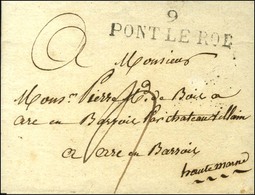 9
PONT LE ROI
A Monsieur
Monsr Pierre de Bois a
arc en Barrois par chateau villain
a arc en Barrois
haute marne